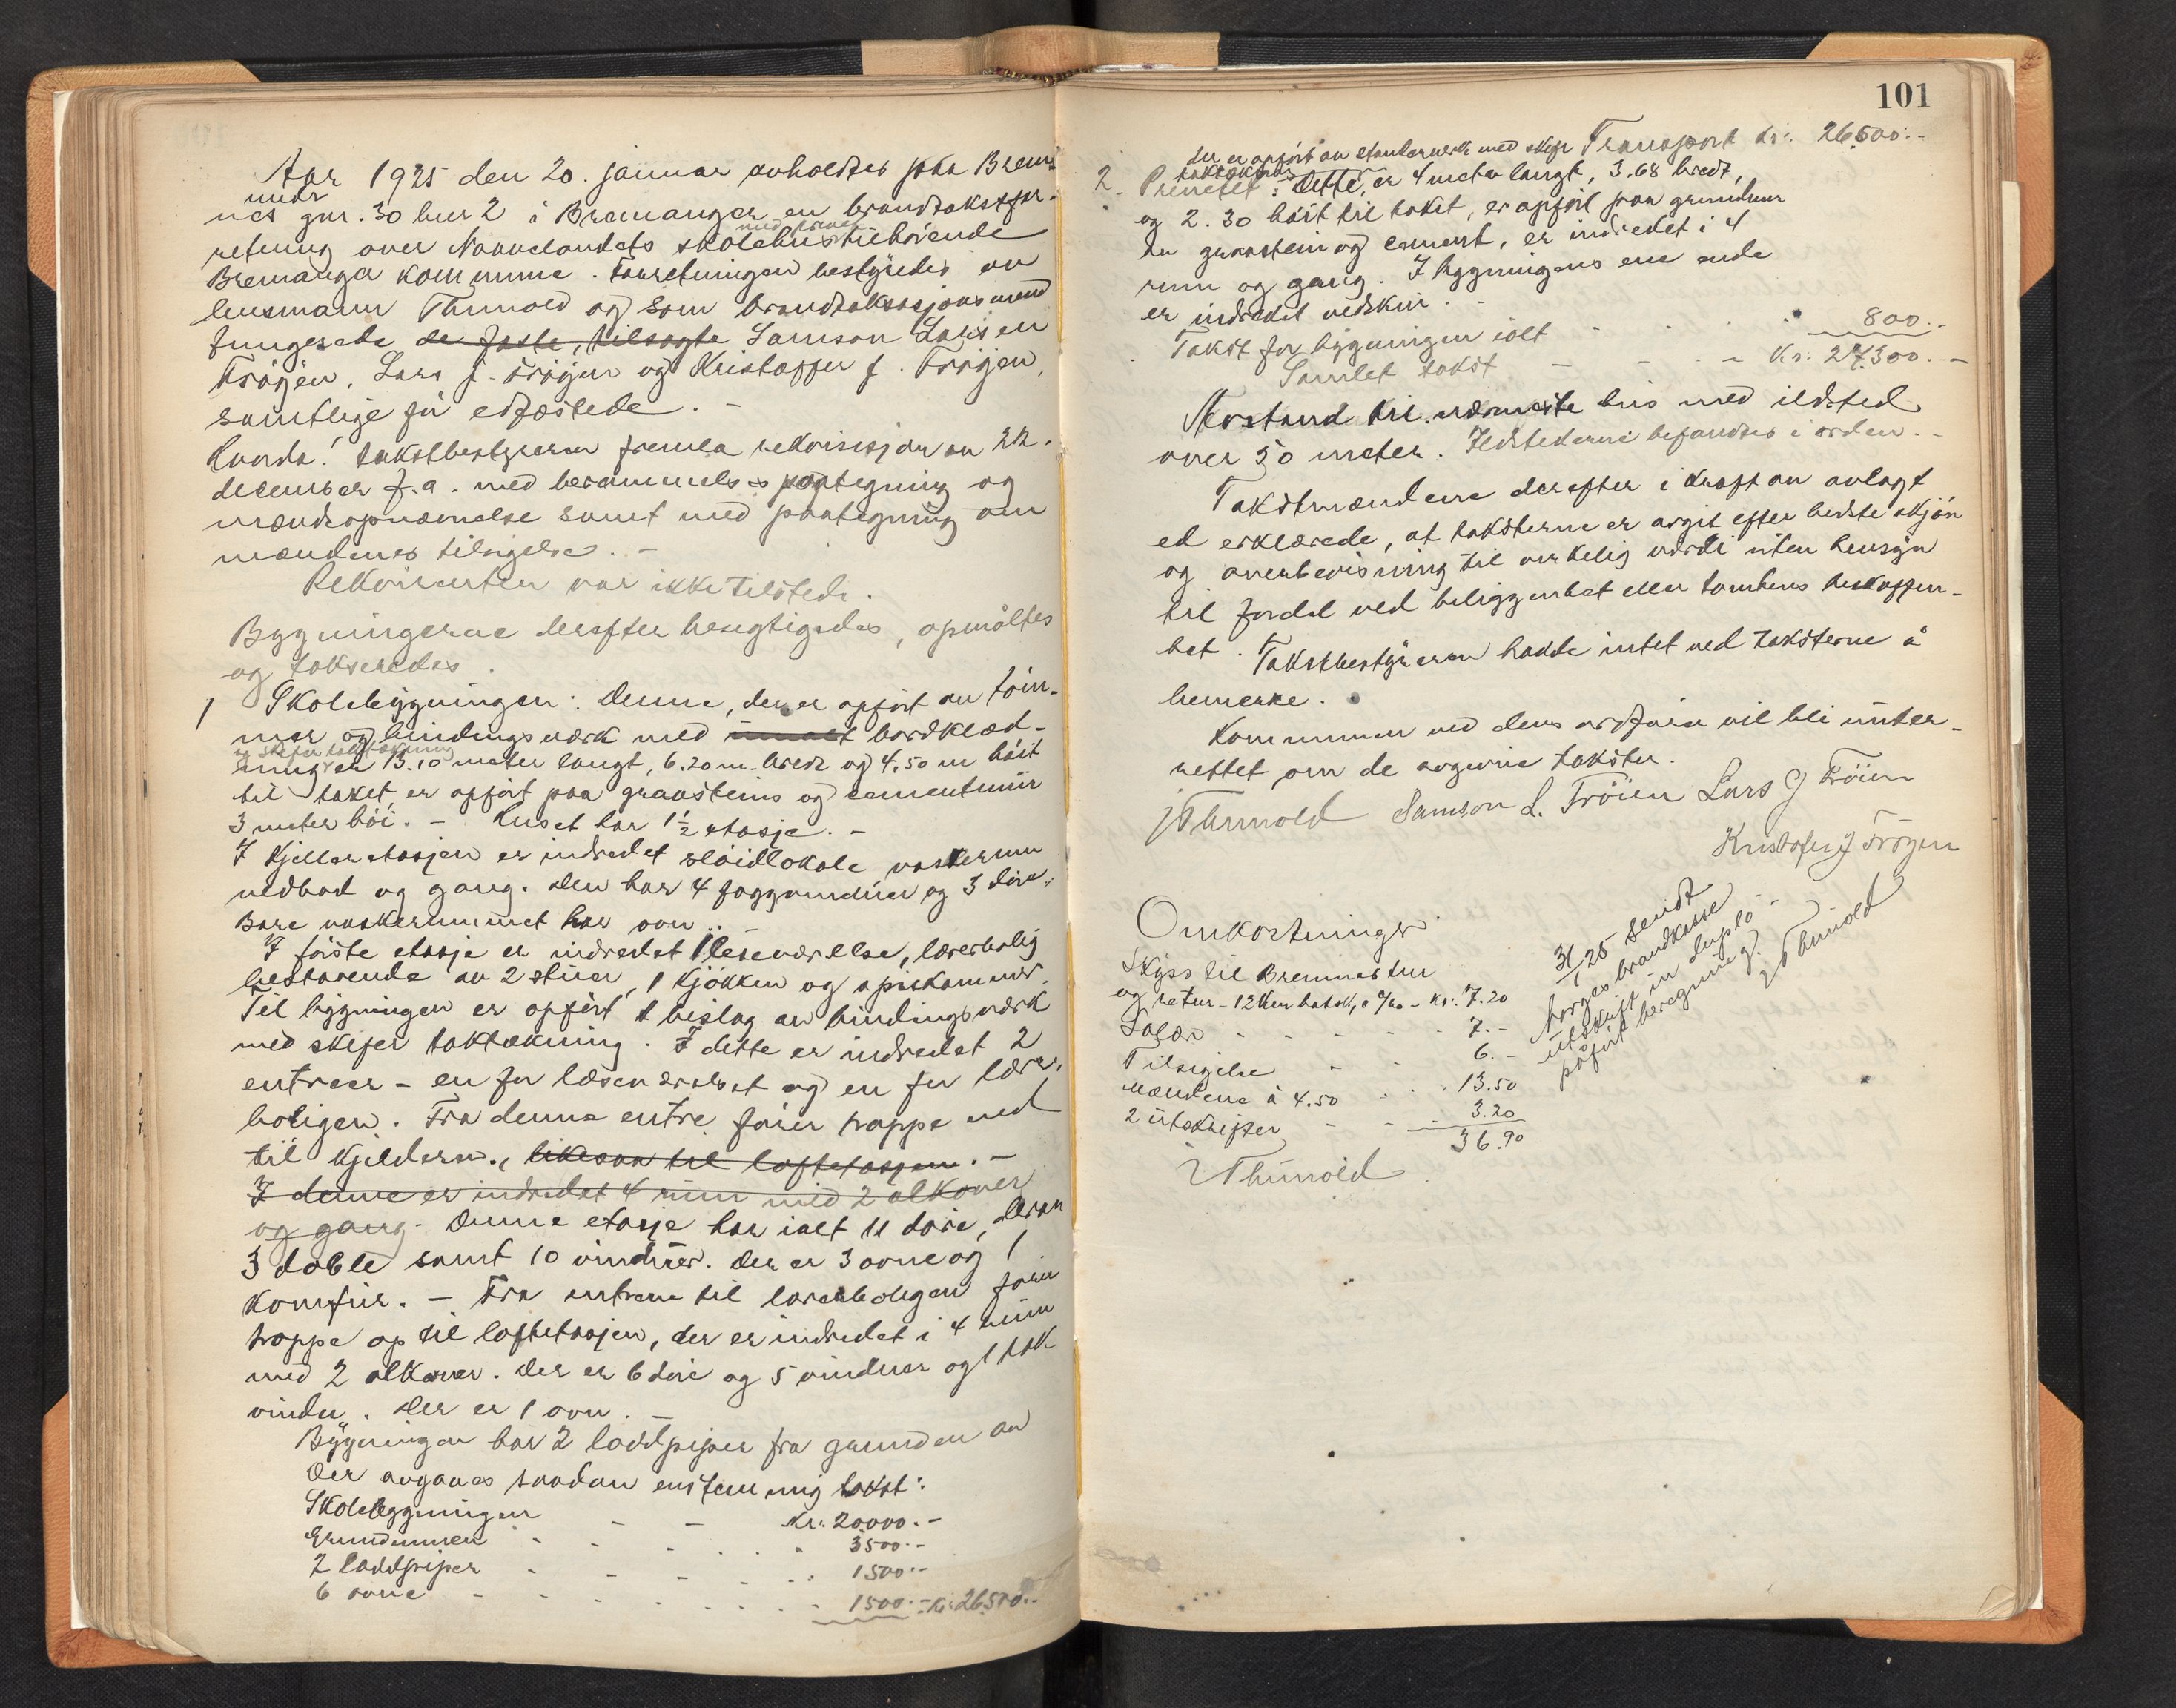 Aar 1925 den 20. januar avholdtes paa Brem-
nes gnr. 30 bnr 2 i Bremanger en brandtakstfor-
retning over Nordlandets skolehus med priveé tilhörende
Bremanger kommune. Forretningen bestyredes av
lensmann Thunold og som brandtakstsjonsmend
fungerede de faste, tilsagte Samson Larsen
Fröyen, Lars J. Fröyen og Kristoffer J. Fröyen,
samtlige för edfæstede. -
Takstbestyreren fremla rekvisisjon av 22.
desember f.a. med berammelses paategning og
mændsopnævnelse samt med paategning om
mændenes tilsigelse. -
Rekvirenten var ikke tilstede.
Bygningerne derefter besigtigedes, opmåltes
og takseredes.
1 Skolebygningen: Denne, der er opfört av töm-
mer og bindingsværk med bordklæd-
ning og skifer taktækning er 13.10 meter langt, 6.20 m. bredt og 4.50 m höit
til taket, er opfört paa graasteins og cementmur
3 meter höi. - Huset har 1½ etasje. -
I Kjelleretasjen er indredet slöidlokale, vaskerum
vedbod og gang. Den har 4 faggvinduer og 3 döre.
Bare vaskerummet har ovn.
I förste etasje er indredet 1 leseværelse, lærerbolig
bestaaende av 2 stuer, 1 kjökken og spiskammer.
Til bygningen er opfört 1 bislag av bindingsværk
med skifer taktækning. I dette er indredet 2
entreer - en for læseværelset og en for lærer-
boligen. Fra denne entre förer trappe ned
til kjelderen., likesaa til loftetasjen. -
I denne er indredet 4 rum med 2 alkover
og gang. Denne etasje har ialt 11 döre, derav
3 doble samt 10 vinduer. Der er 3 ovne og 1
komfur. - Fra entreen til lærerboligen förer
trappe op til loftetasjen, der er indredet i 4 rum
med 2 alkover. Der er 6 döre og 5 vinduer og 1 tak-
vindu. Der er 1 ovn. -
Bygningen har 2 loddpiper fra grunden av
Der avgaves saadan enstemmig takst:
Skolebygningen - - Kr. 20000.-
Grundmuren - - - 3500.-
2 loddpiper - - - 1500.-
6 ovne - - - 1500.- Kr. 26500.-
101
Transport kr. 26500.-
2. Privetet: Dette, der er opfört av stenderverk med skifer taktækning er 4 meter langt, 3.68 bredt,
og 2.30 höit til taket, er opfört paa grundmur
av graastein og cement, er indredet i 4
rum og gang. I bygningens ene ende
er indredet vedskur.
Takst for bygningen ialt - - - 800.-
Samlet takst - - - Kr. 27,300.-
Avstand til nærmeste hus med ildsted
over 50 meter. Ildstederne befandtes i orden. -
Takstmændene derefter i kraft av avlagt
ed erklærede, at taksterne er avgit efter bedste skjön
og overbevisning til virkelig værdi uten hensyn
til fordel ved beliggenhet eller tomtens beskaffen-
het. Takstbestyreren hadde intet ved taksterne å
bemerke.
Kommunen ved dens ordförer vil bli under-
rettet om de avgivne takster.
JThunold Samson L. Fröien Lars J Fröien
Kristofer J Fröyen
Omkostninger
Skyss til Bremnes tur
og retur - 12 km - Kr. 7.20
Salær - - - 7.-
Tilsigelse - - 6.-
Mændene à 4.50 - - 13.50
2 utskrifter - - 3.20
36.90
JThunold
31/1 25 sendt
Norges brandkasse
utskrift in duplo -
påfört beregning.
JThunold